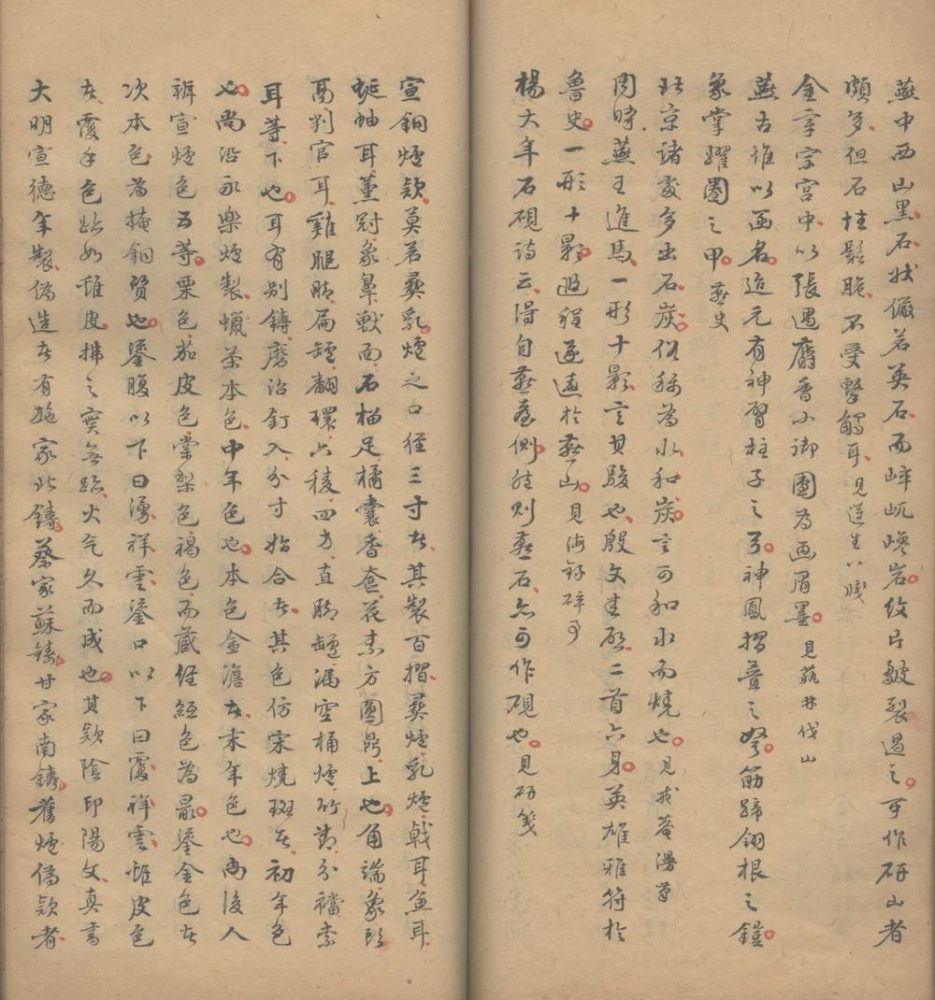 燕中西山黑石狀儼若英石而崒屼巉岩紋片皴裂過之可作研山者
頗多但石性鬆脆不受擊觸耳見遵生八牋
金章宗宮中以張遇麝香小御團為画眉墨見菰井伐山
燕古堆以画名迨元有神臂柱子之弓神鳳摺疊之弩筋蹄翎根之鎧
象掌躍圈之甲燕史
北京諸處多出石炭俗稱為水和炭言可和水而燒也見戒菴漫筆
周時燕王進馬一形十影言其駿也殷文圭啟二首六身英雄雅符於
魯史一形十影遐程遂遠於燕山見海錄碎事
楊大年石硯詩云得自燕臺側然則燕石亦可作硯也見研箋
宣銅爐款莫若彝乳爐之口徑三寸者其製百摺彝爐乳爐戟耳魚耳
蜒蚰耳薰冠象鼻獸面石榴足橘囊香奩花素方圓鼎上也角端象頭
鬲判官耳雞腿脚扁罏翻環六稜四方直脚罏漏空桶爐竹節分襠索
耳等下也耳有別鑄磨治釘入分寸始合者其色仿宋燒斑者初年色
也尚沿永樂爐製蠟茶本色中年色也本色金澹者末年色也而後人
辨宣爐色五等栗色茄皮色棠梨色褐色而藏經紙色為最鎏金色者
次本色為掩銅質也鎏腹以下曰湧祥雲鎏口以下曰覆祥雲雞皮色
者覆手色跡如雞皮拂之實無跡火气久而成也其款陰印陽文真書
大明宣德年製偽造者有施家北鑄蔡家蘇鑄甘家南鑄舊爐偽款者